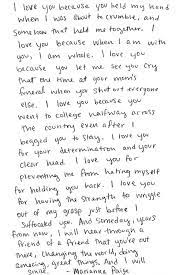 I love you because you held my hand
when I was about to crumble, and
somehow that held me together. I
love you because when I am with
you, I am whole. I love you
because you let me see you cry
that one time at your mom's
funeral when you shut out everyone
else. I love you because you
went to college halfway across
the country even after I
begged you to stay. I love you
for your determination and your
clear head. I love you for
preventing me from hating myself
for holding you back. I love you
for having the strength to wriggle
out of my grasp just before I
suffocated you. And someday, years
from now, I will hear through a
friend of a friend that you're out
there, changing the world, doing
amazing, great things. And I will
smile. - Marianne Paige